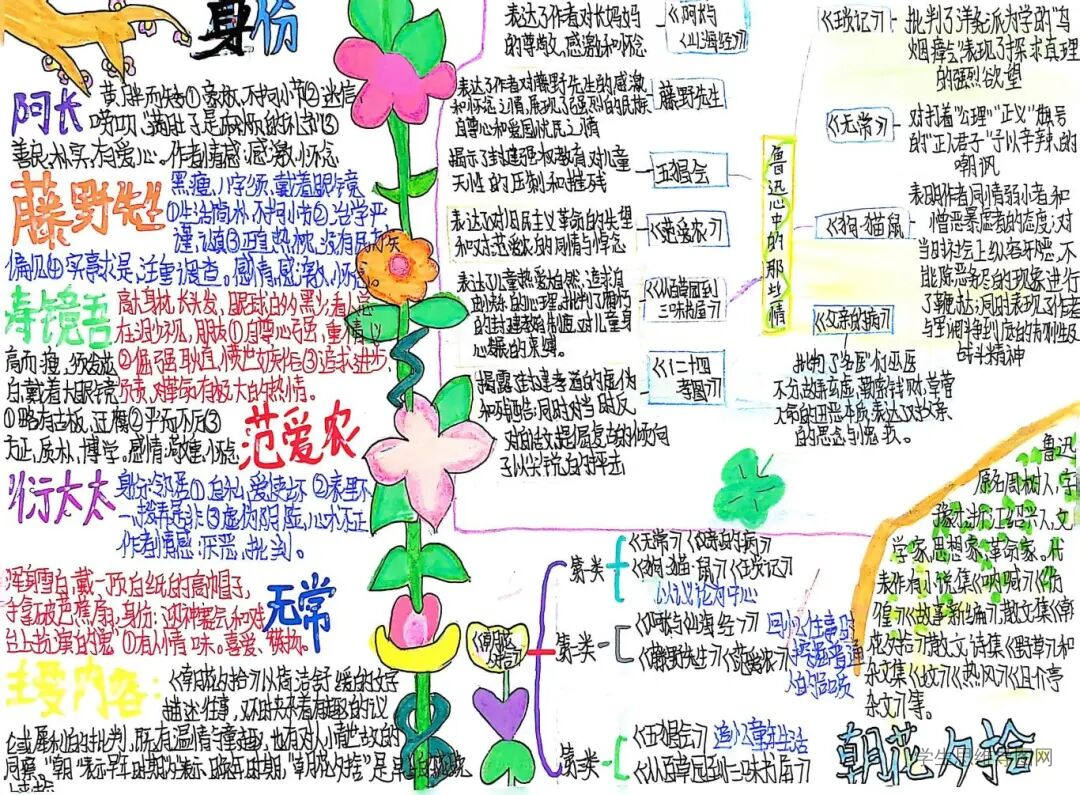 身份
阿长
黄胖而矮①豪放、不拘小节②迷信
唠叨,"满肚子是麻烦的礼节"③
善良、朴实、有爱心。作者情感:感激、怀念
藤野先生
黑瘦,八字须,戴着眼镜
①生活简朴,不拘小节②治学严
谨、认真③正直热忱,没有民族
偏见④实事求是,注重调查。感情:感激、怀念
寿镜吾
高而瘦,须发花
白,戴着大眼镜
①略有古板、迂腐②平而不厉③
方正、质朴、博学。感情:敬重、怀念
高大身材,长头发,眼球白多黑少,看人总
在渺视,朋友①自尊心强,重情义
②倔强耿直,愤世嫉俗③追求进步,
负责,对革命有极大的热情。
范爱农
衍太太
身份:邻居①自私,爱使坏②表里不
一、拨弄是非③虚伪阴险,心术不正
作者情感:厌恶、批判。
无常
浑身雪白,戴一顶白纸的高帽子,
手拿破芭蕉扇,身份:迎神赛会和戏
台上扮演的"鬼"①有人情味。喜爱、
主要内容:
《朝花夕拾》以简洁舒缓的文字
描述往事,又不时夹杂着有趣的议
论或犀利的批判,既有温情与童趣,也有对人情世故的
洞察。"朝"表示早年时期,"夕"表示晚年时期,"朝花夕拾"是
表达了作者对长妈妈
的尊敬、感激和怀念
《阿长与
《山海经》》
表达了作者对藤野先生的感激
和怀念之情,展现了强烈的民族
自尊心和爱国忧民之情
藤野先生
揭示了封建强权教育,对儿童
天性的压制和摧残
五猖会
表达了对旧民主义革命的失望
和对范爱农的同情与悼念
《范爱农》
表达了儿童热爱自然、追求自
由的
的封建教育制度对儿童身
心发展的束缚。
《从百草园到
三味书屋》
揭露在封建孝道的虚伪
和残酷,同时对当时反
对白话文,提倡复古的倾向
予以尖锐的抨击
《二十四
孝图》
鲁迅心中的那些情
《琐记》
批判了洋务派办学的"乌
烟瘴气",表现了探求真理
的强烈欲望
《无常》
对打着"公理""正义"旗号
的"正人君子"予以辛辣的
嘲讽
《狗·猫·鼠》
表明作者同情弱小者和
憎恶暴虐者的态度;对
当时社会上纵容邪恶,不
能除恶务尽的现象进行
了鞭挞;同时表现了作者
与黑暗
战斗精神
《父亲的病》
批判了名医们巫医
不分故弄玄虚,勒索钱财,草菅
人命的丑恶本质,表达了对父亲
的思念与愧疚。
《朝花
夕拾》
第一类
《无常》《父亲的病》
《狗·猫·鼠》《琐记》
以议论为中心
第二类
《阿长与山海经》
《藤野先生》《范爱农》
回忆往事时
挖掘普通
人的品质
第三类
《五猖会》
《从百草园到三味书屋》
追忆童年生活
鲁迅
原名周树人,字
豫才,浙江绍兴人,文
学家、思想家、革命家。代
表作有小说集《呐喊》《彷
徨》《故事新编》,散文集《朝
花夕拾》散文诗集《野草》和
杂文集《坟》《热风》《且介亭
杂文》等。
朝花夕拾
学生思维导图网